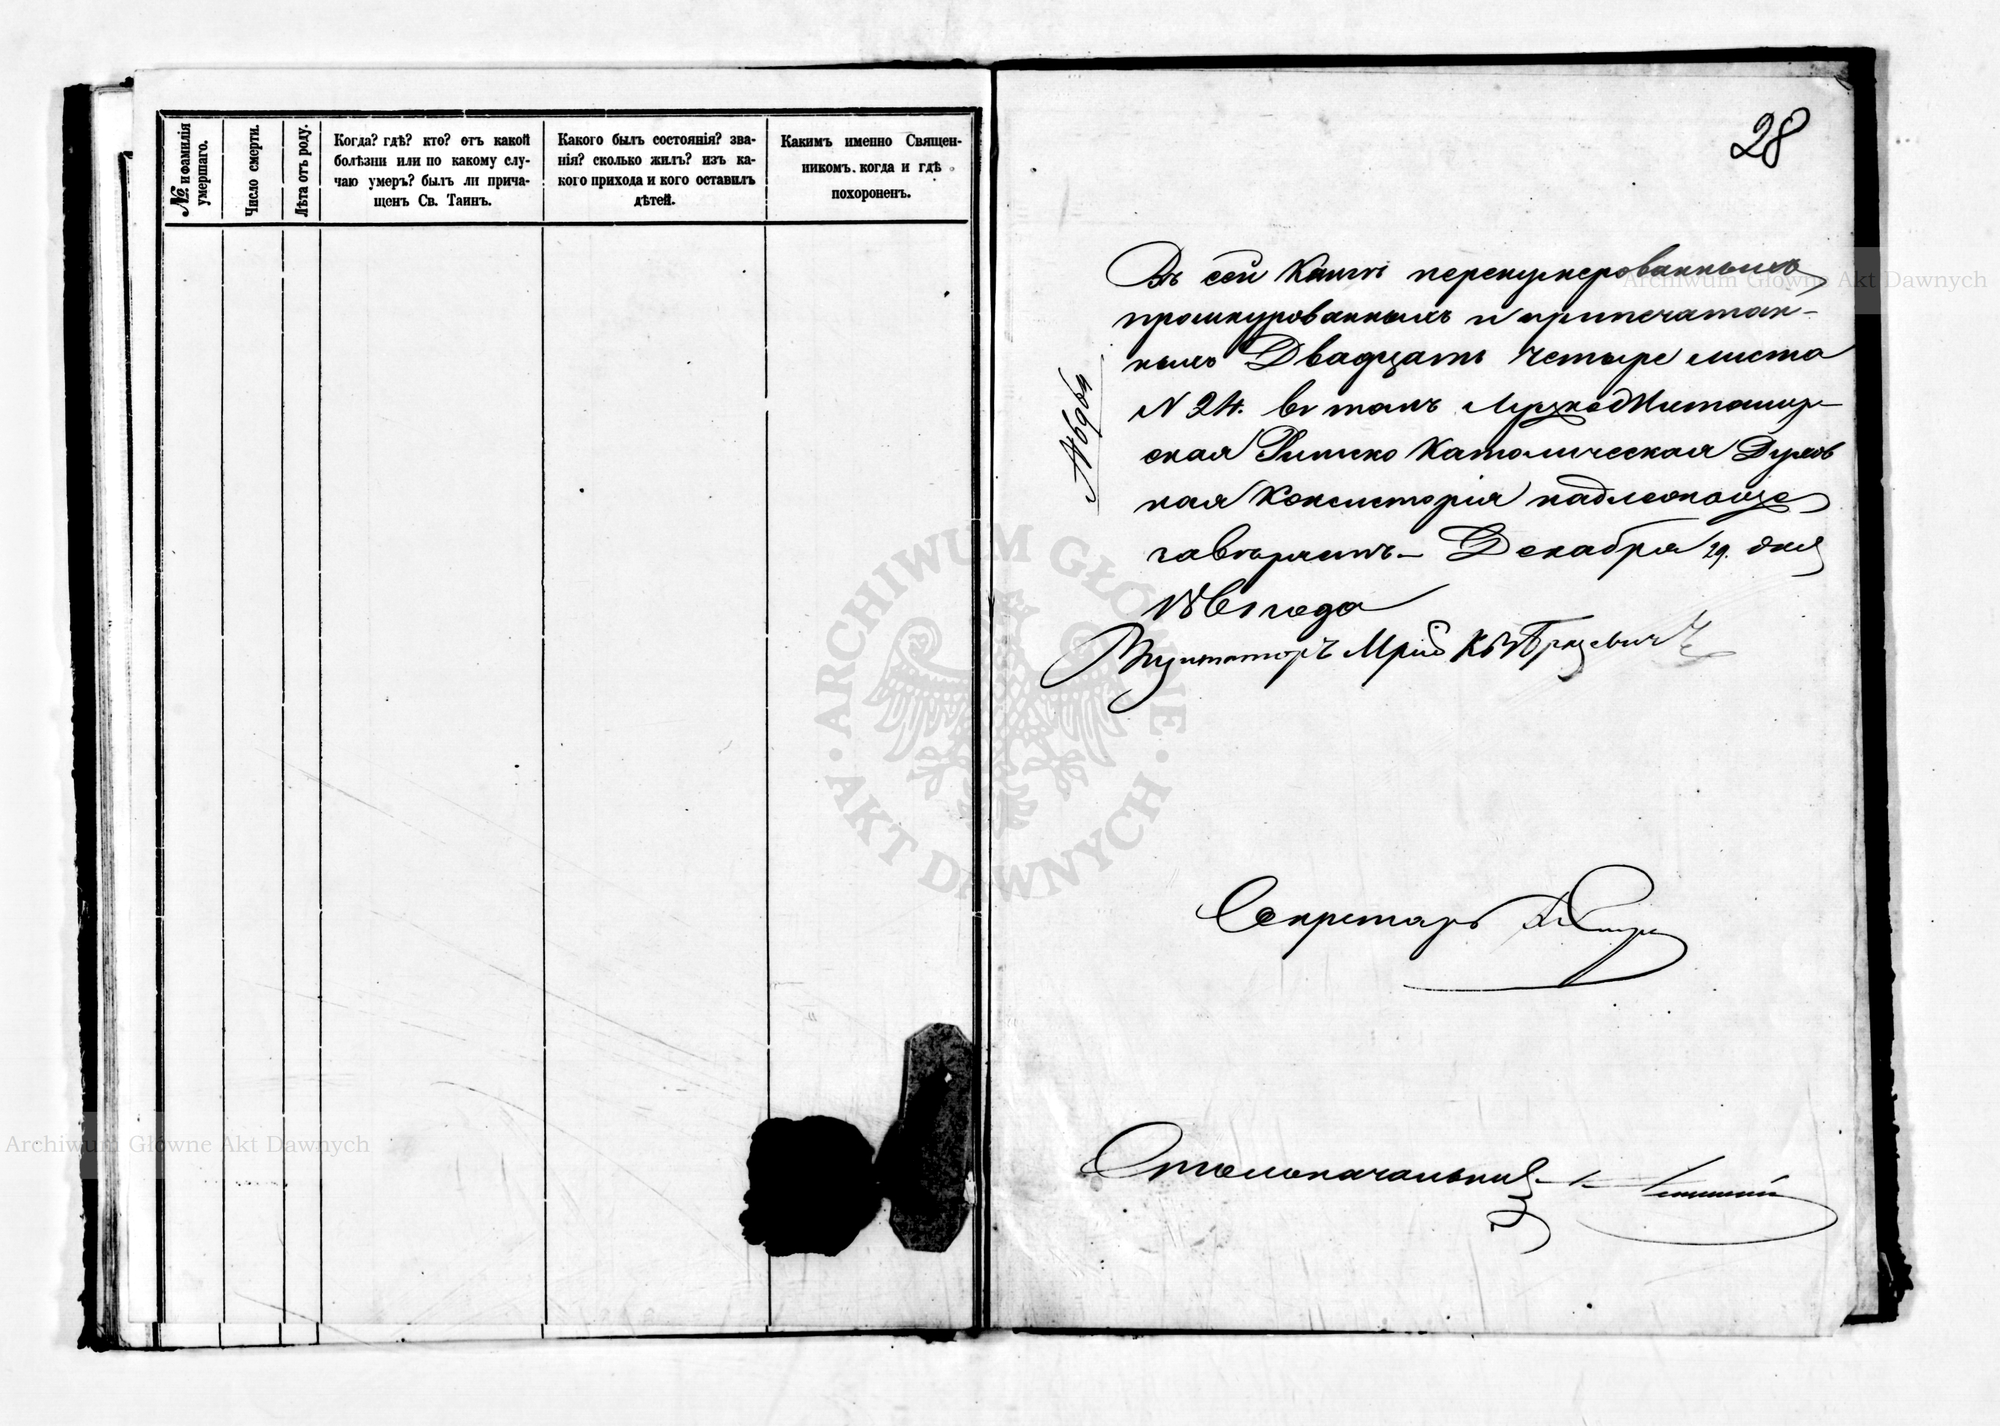 № и фамилія
умершаго.
Число смерти.
Лѣта отъ роду.
Когда? гдѣ? кто? отъ какой
болѣзни или по какому слу-
чаю умеръ? былъ ли прича-
щенъ Св. Таинъ.
Какого былъ состоянія? зва-
нія? сколько жилъ? изъ ка-
кого прихода и кого оставилъ
дѣтей.
Какимъ именно Священ-
никомъ, когда и гдѣ
похороненъ.
28
Въ сей Книгѣ перенумерованныхъ
прошнурованныхъ и припечатан-
ныхъ Двадцать четыре листа
N 24. въ томъ Луцко Житомир-
ская Римско Католическая Духов
ная Консисторія надлежаще
завѣряетъ – Декабря 29. дня
годо
Визитаторъ
Секретарь
Столоначальникъ
Archiwum Główne Akt Dawnych
Archiwum Główne Akt Dawnych
ARCHIWUM GŁÓWNE · AKT DAWNYCH ·